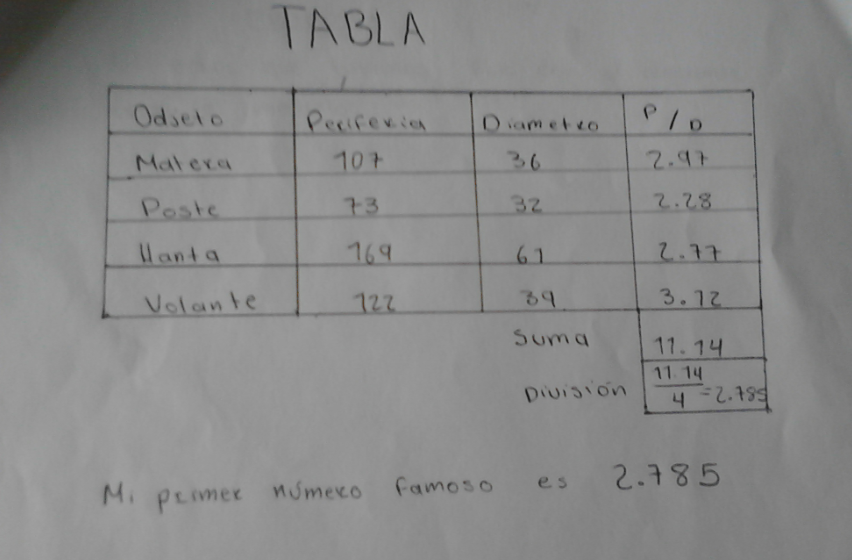 TABLA
Odseto Periferia Diametro P/D
Matera 107 36 2.97
Poste 73 32 2.28
llanta 169 61 2.77
Volante 122 39 3.12
Suma 11.14
División 11.14/4=2.785
Mi primer número famoso es 2.785